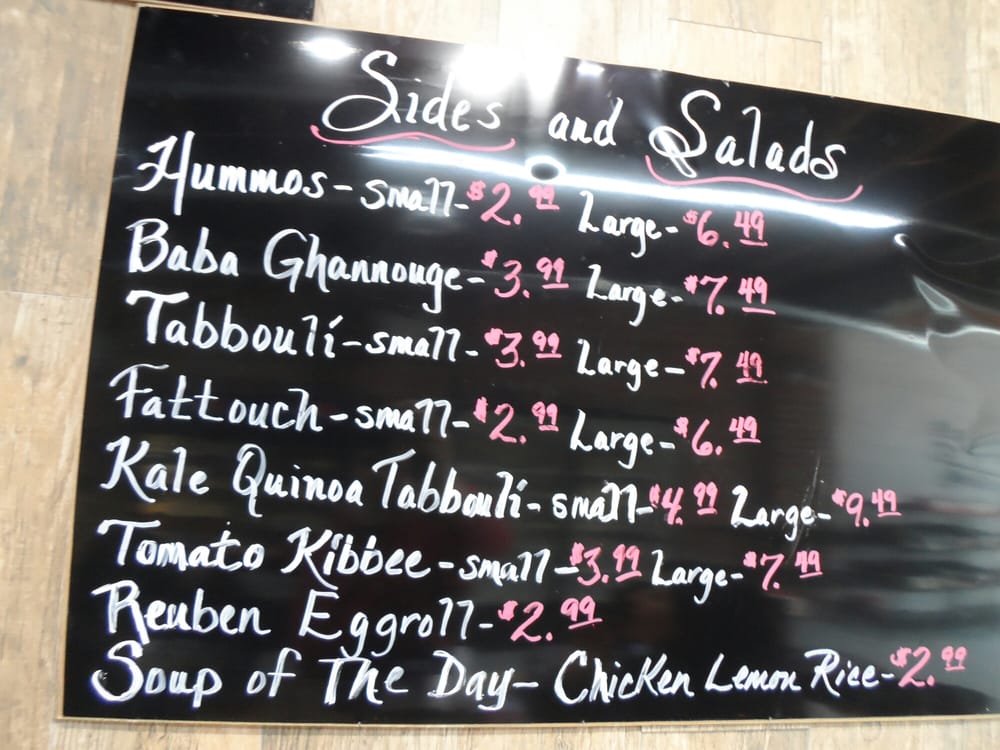 Sides and Salads
Hummos - small - $2.99 Large - $6.49
Baba Ghannouge - $3.99 Large - $7.49
Tabboulí - small - $3.99 Large - $7.49
Fattouch - small - $2.99 Large - $6.49
Kale Quinoa Tabboulí - small - $4.99 Large - $9.49
Tomato Kibbee - small - $3.99 Large - $7.49
Reuben Eggroll - $2.99
Soup of The Day - Chicken Lemon Rice - $2.99